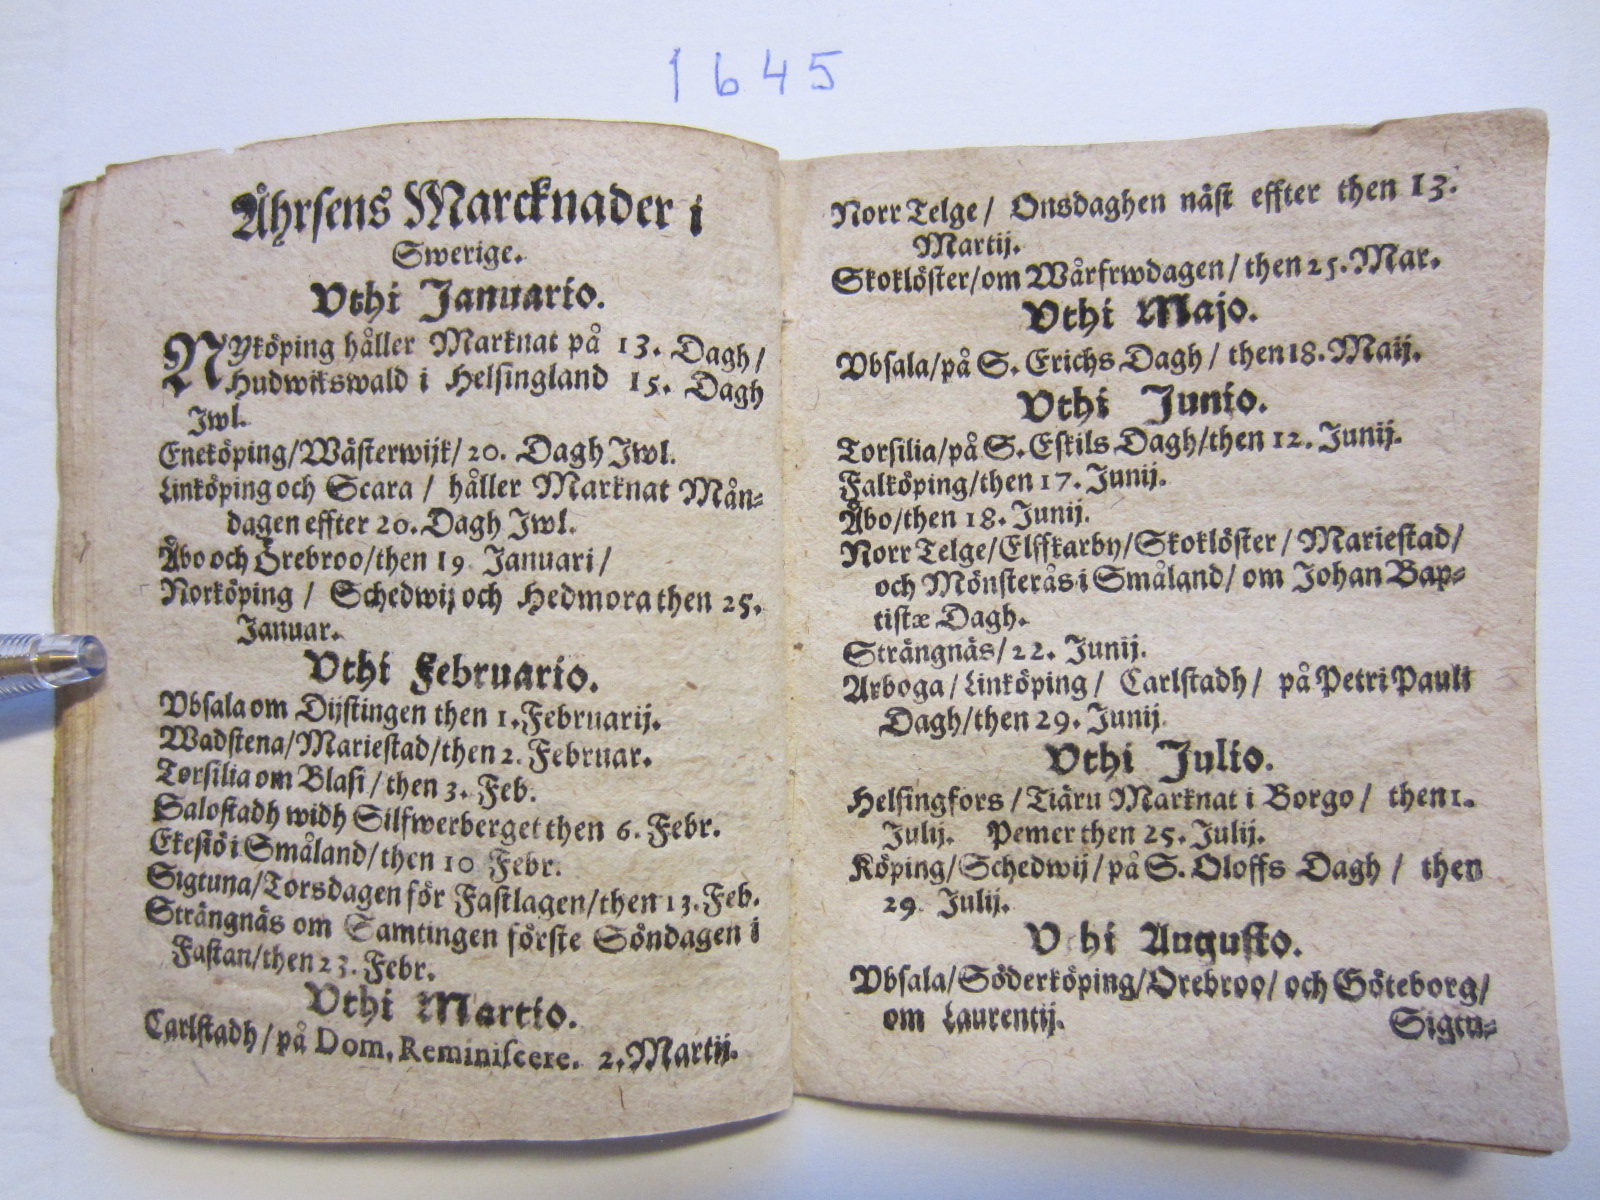 1645
Åhrsens Marcknader i
Swerige.
Vthi Januario.
NYköping håller Marknat på 13. Dagh/
Hudwikswald i Helsingland 15. Dagh
Jwl.
Eneköping/Wästerwijk/20. Dagh Jwl.
Linköping och Scara / håller Marknat Mån-
dagen effter 20. Dagh Jwl.
Åbo och Örebroo/then 19 Januari/
Norköping / Schedwij och Hedmora then 25.
Januar.
Vthi Februario.
Vbsala om Dijstingen then 1. Februarij.
Wadstena/Mariestad/then 2. Februar.
Torsilia om Blasi/then 3. Feb.
Salostadh widh Silfwerberget then 6. Febr.
Ekesiö i Småland/then 10 Febr.
Sigtuna/Torsdagen för Fastlagen/then 13. Feb.
Strängnäs om Samtingen förste Söndagen i
Fastan/then 23. Febr.
Vthi Martio.
Carlstadh/på Dom, Reminiscere. 2. Martij.
Norr Telge/ Onsdaghen näst effter then 13.
Martij.
Skoklöster/om Wårfrwdagen/then 25. Mar.
Vthi Majo.
Vbsala/på S. Erichs Dagh/then 18. Maij.
Vthi Junio.
Torsilia/på S. Eskils Dagh/then 12. Junij.
Falköping/then 17. Junij.
Åbo/then 18. Junij.
Norr Telge/Elffkarby/Skoklöster/Mariestad/
och Mönsterås i Småland/om Johan Bap-
tistæ Dagh.
Strängnäs/22. Junij.
Arboga/Linköping/ Carlstadh/ på Petri Pauli
Dagh/then 29. Junij
Vthi Julio.
Helsingfors/Tiäru Marknat i Borgo/ then 1.
Julij. Pemer then 25. Julij.
Köping/Schedwij/på S. Oloffs Dagh / then
29. Julij.
V hi Augusto.
Vbsala/Söderköping/Orebroo/och Göteborg/
om Laurentij.
Sigtu-